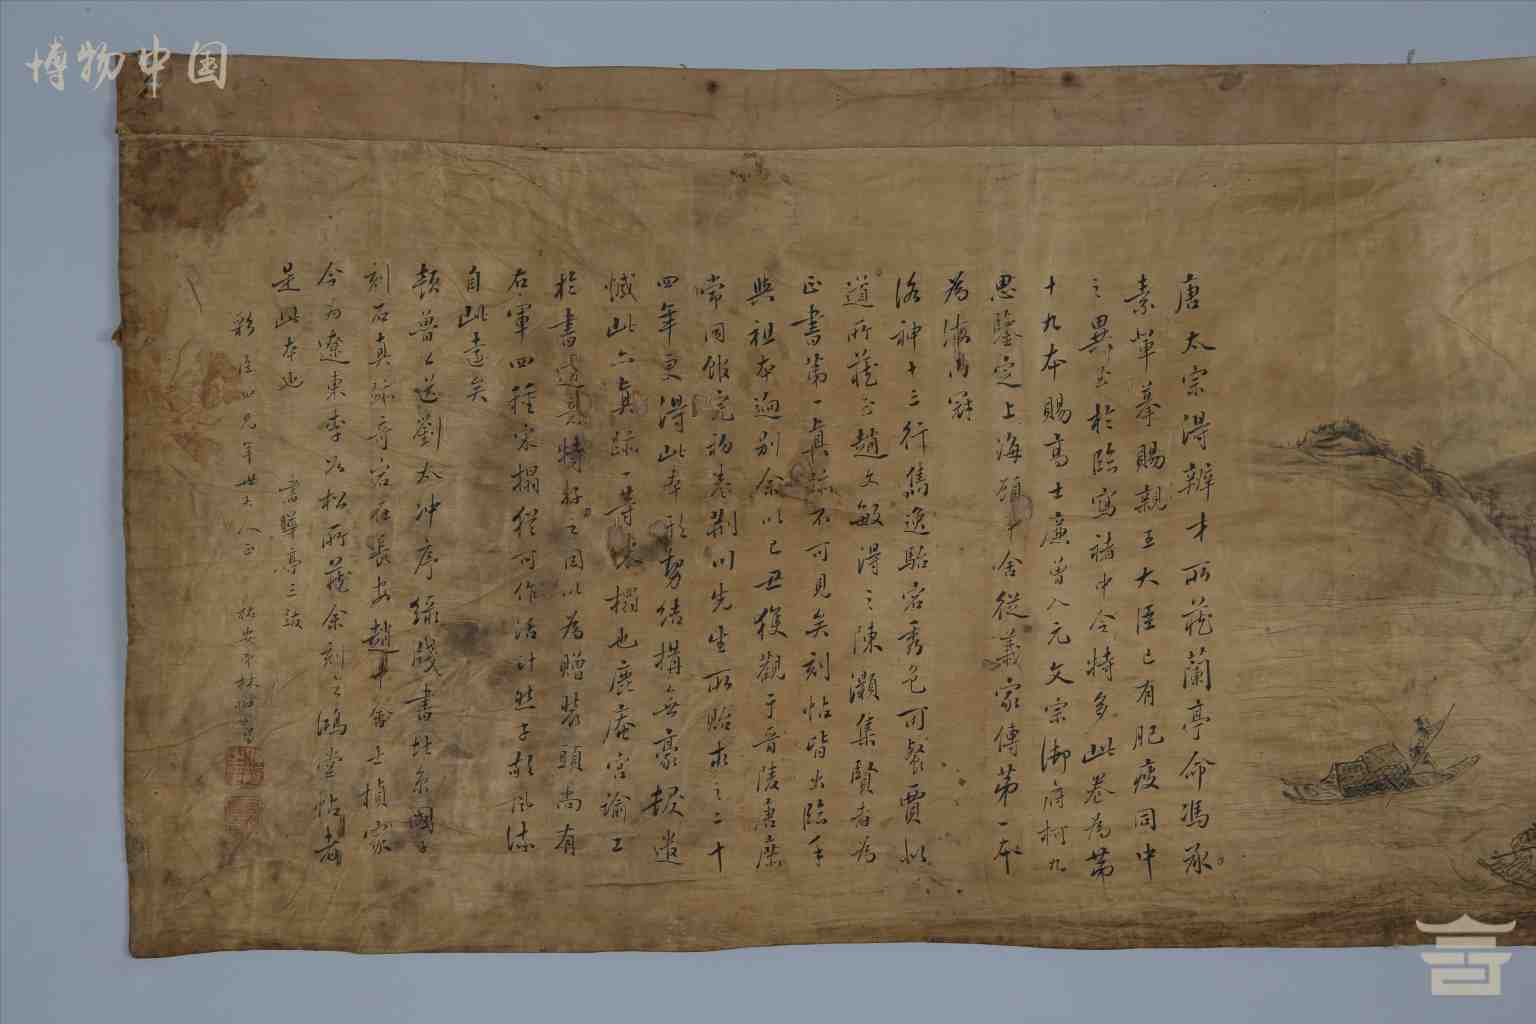 博物中国
唐太宗得辨才所藏蘭亭命馮承
素輩摹賜親王大臣已有肥瘦同中
之異至於臨寫褚中令特多此卷為第
十九本賜高士廉曾入元文宗御府柯九
思鑒定上海顧中舍從義家傳第一本
為海內冠
洛神十三行雋逸駘宕秀色可餐賈似
道所藏至趙文敏得之陳灝集賢者為
正書第一真跡不可見矣刻帖皆出臨手
與祖本迥別余以己丑獲觀于晉陵唐
常同館寔荊川先生所貽求之二十
四年更得此本形勢結搆無豪髮遺
憾此亦真跡一等宋搨也鹿庵宮諭工
於書道其特好之因以為贈裝頭尚有
右軍四種宋搨從可作活計然子敬風流
自此遠矣
顏魯公送劉太沖序綠牋書
刻石真跡奇宕在長安趙中舍士楨家
今為遼東李公松所藏余刻之鴻堂帖者
是此本也
書曄亭三跋
四兄年世大人正
弟林